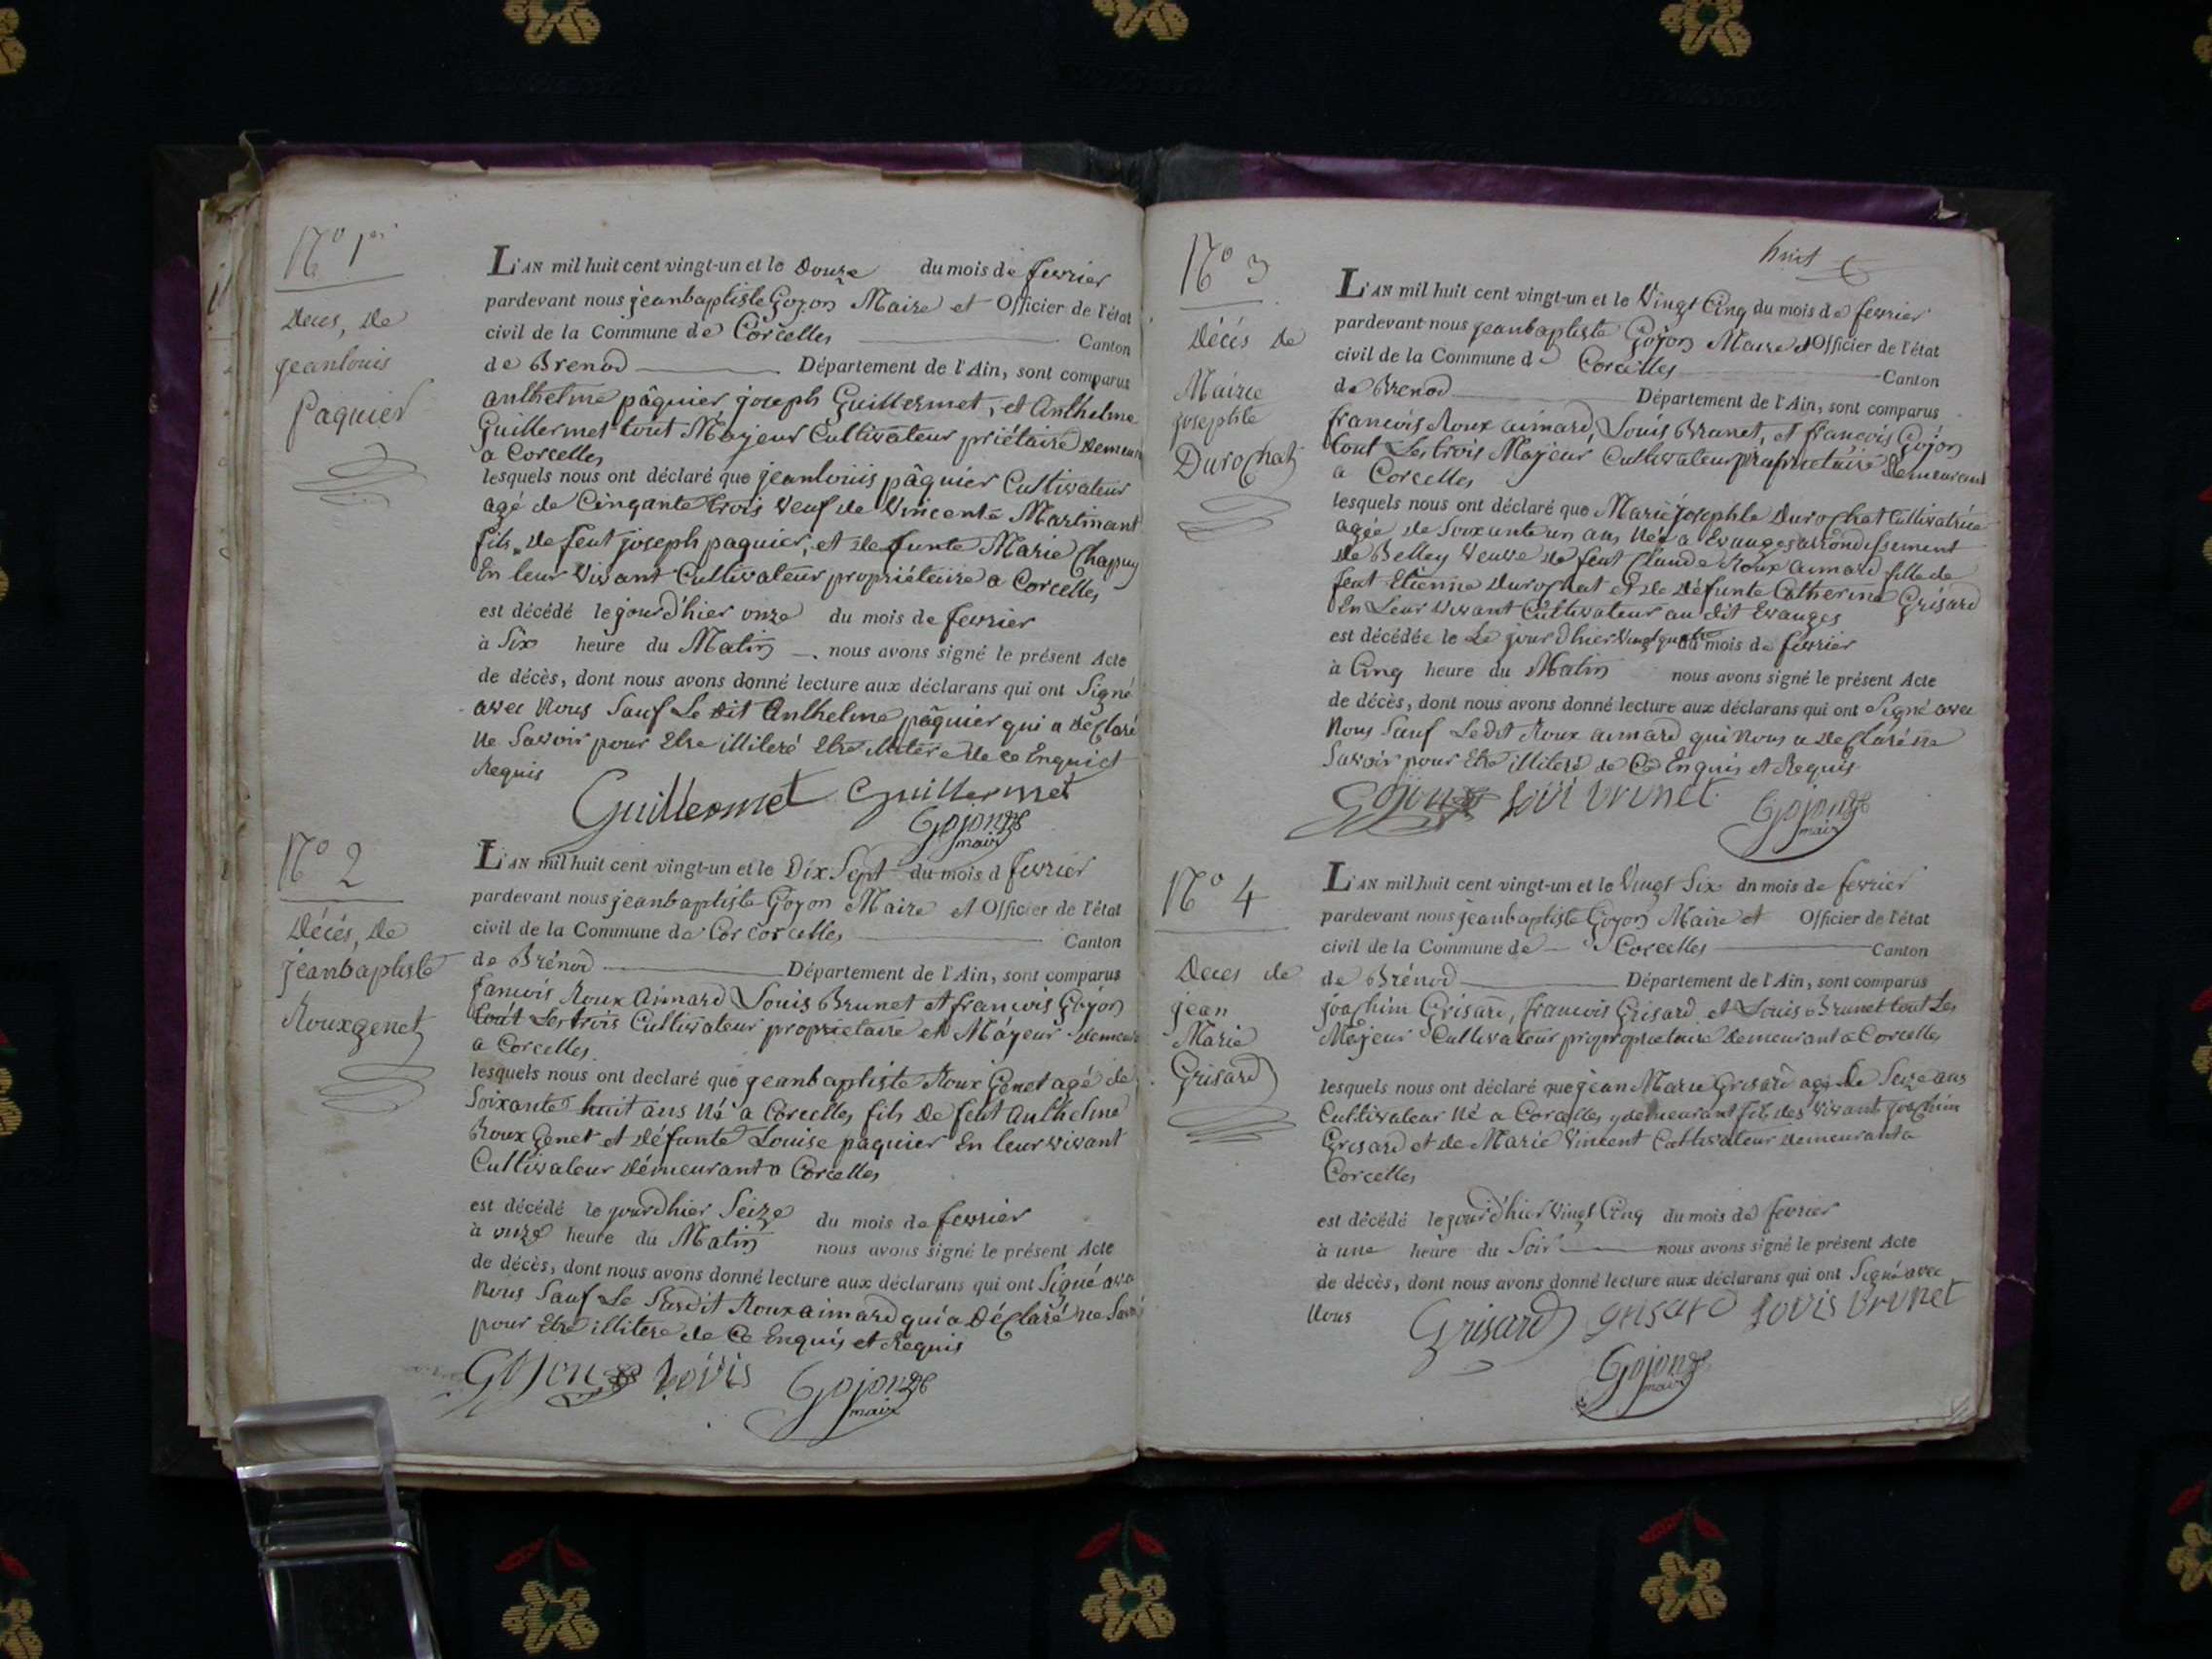 N.o 1er
Deces, de
jeanlouis
Paquier
L'AN mil huit cent vingt-un et le Douze du mois de fevrier
pardevant nous jeanbaptiste Gojon Maire et Officier de l'état
civil de la Commune de Corcelles Canton
de Brenod Département de l'Ain, sont comparus
anthelme pâquier joseph Guillermet, et Anthelme
Guillermet tout Majeur Cultivateur priétaire Demeur
a Corcelles
lesquels nous ont déclaré que jeanlouis pâquier Cultivateur
agé de Cinqante trois Veuf de Vincente Martinant
fils de feut joseph paquier, et defunte Marie Chapuy
En leur Vivant Cultivateur propriétaire a Corcelles
est décédé le jourd'hier onze du mois de fevrier
à Six heure du Matin nous avons signé le présent Acte
de décès, dont nous avons donné lecture aux déclarans qui ont Signé
avec Nous Sauf Le dit Anthelme pâquier qui a déClaré
Ne Savoir pour Etre illiteré Etre illitere de ce Enquict
Requis
Guillermet Guillermet
Gojon
maire
N.o 2
Décés, de
jeanbaptiste
Rouxgenet
L'AN mil huit cent vingt-un et le Dix Sept du mois d fevrier
pardevant nous jeanbaptiste Gojon Maire et Officier de l'état
civil de la Commune de Corcorcelles Canton
de Brénod Département de l'Ain, sont comparus
fancois Roux Aimard Louis Brunet et francois Gojon
tout Les trois Cultivateur proprietaire et Majeur demeur
a Corcelles
lesquels nous ont declaré que jeanbaptiste Roux Genet agé de
Soixante huit ans Né a Corcelles fils De feut anthelme
Roux Genet et défunte Louise paquier En leur vivant
Cultivateur démeurant a Corcelles
est décédé le jourdhier Seize du mois de fevrier
à onze heure du Matin nous avons signé le présent Acte
de décès, dont nous avons donné lecture aux déclarans qui ont Signé avec
Nous Sauf Le Susdit Roux aimard qui a DéClaré ne Savoi
pour Etre illitere de Ce Enquis et Requis
Gojon Louis Gojon
maire
huit
N.o 3
Décés de
Mairie
josephte
Durochat
L'AN mil huit cent vingt-un et le Vingt Cinq du mois de fevrier
pardevant nous jeanbaptiste Gojon Maire et Officier de l'état
civil de la Commune d Corcelles Canton
de Brenod Département de l'Ain, sont comparus
francois Roux aimard, Louis Brunet, et francois Gojon
tout Les trois Majeur Cultivateur proprietaire demeurant
a Corcelles
lesquels nous ont déclaré que Marie josephte Durochat Cultivatrice
agée de Soixante un ans Née a Evanges arrondissement
de Belley Veuve de feut Claude Roux aimard fille de
feut Etienne Durochat et de Défunte Catherine Grisard
En Leur vivant Cultivateur au dit Evanges
est décédée le Le jourdhier Vingt quatre du mois de fevrier
à Cinq heure du Matin nous avons signé le présent Acte
de décès, dont nous avons donné lecture aux déclarans qui ont Signé avec
Nous Sauf Ledit Roux aimard qui Nous a deClaré ne
Savoir pour Etre illiteré de Ce Enquis et Requis
Gojon Loui brunet Gojon
maire
N.o 4
Deces de
jean
Marie
Grisard
L'AN mil huit cent vingt-un et le Vingt Six du mois de fevrier
pardevant nous jeanbaptiste Gojon Maire et Officier de l'état
civil de la Commune de Corcelles Canton
de Brénod Département de l'Ain, sont comparus
joachim Grisard, francois Grisard et Louis Brunet tout Les
Majeur Cultivateur propropriétaire demeurant a Corcelles
lesquels nous ont déclaré que jean Marie Grisard agé de Seize ans
Cultivateur Né a Corcelles y demeurant fils des Vivant joachim
Grisard et de Marie Vincent Cultivateur demeurant a
Corcelles
est décédé le jourd'hier Vingt Cinq du mois de fevrier
à une heure du Soir nous avons signé le présent Acte
de décès, dont nous avons donné lecture aux déclarans qui ont Signé avec
Nous Grisard grisard Louis brunet
Gojon
maire